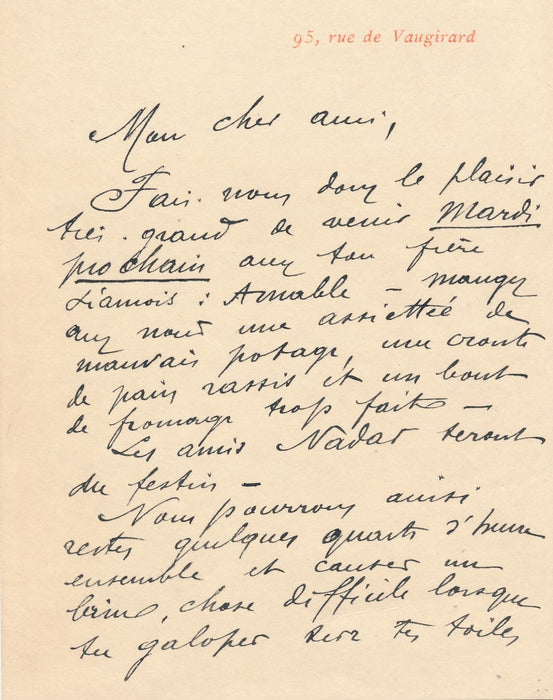 95, rue de Vaugirard
Mon cher ami,
Fais-nous donc le plaisir
très-grand de venir Mardi
prochain avec ton frère
siamois : Amable – manger
avec nous une assiettée de
mauvais potage, une croute
de pain rassis et un bout
de fromage trop fait –
Les amis Nadar seront
du festin –
Nous pourrons ainsi
rester quelques quarts d'heure
ensemble et causer un
brin, chose difficile lorsque
tu galopes sur tes toiles